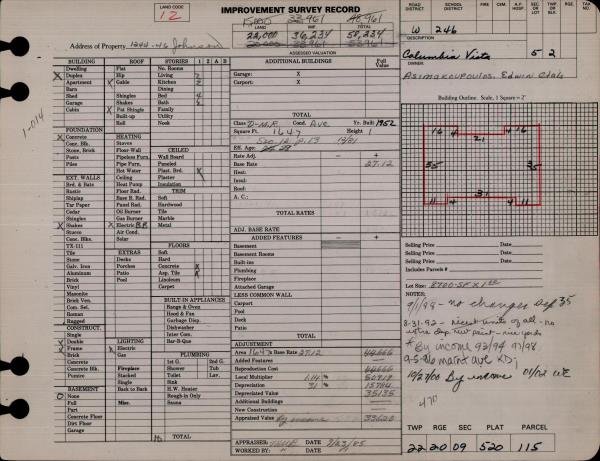 LAND CODE
12
IMPROVEMENT SURVEY RECORD
LAND IMP. TOTAL
33,961 48,961
22,000 36,234 58,234
20,000 33,961 53,961
ASSESSED VALUATION
Address of Property 1244-46 Johnson
ROAD DISTRICT SCHOOL DISTRICT FIRE CEM. A.P. HOSP. SEC OR LOT TWP OR BLK RGE. TAX NO.
W 246
DESCRIPTION
Columbia Vista 5 2
Asimakoupoulos, Edwin Etals
BUILDING
Dwelling
Duplex
Apartment
Barn
Shed
Garage
Cabin
ROOF
Flat
Hip
Gable
Shingles
Shakes
Pat Shingle
Built-up
Roll
STORIES 1 2 A B
No. Rooms
Living 2
Kitchen 2
Dining
Bed 4
Bath 2
Family
Utility
Nook
1-014
FOUNDATION
Concrete
Conc. Blk.
Stone, Brick
Posts
Piles
HEATING
Stoves
Floor Wall
Pipeless Furn.
Pipe Furn.
Hot Water
Ceiling
Heat Pump
Floor Rad.
Base R. Rad.
Panel Rad.
Oil Burner
Gas Burner
Electric B.B.
Air Cond.
Solar
CEILED
Wall Board
Paneled
Plast. Brd.
Plaster
Insulation
TRIM
Soft
Hardwood
Tile
Marble
Metal
EXT. WALLS
Brd. & Bats
Rustic
Shiplap
Tar Paper
Cedar
Shingles
Shakes
Stucco
Conc. Blks.
TX-111
Tile
Stone
Galv. Iron
Aluminum
Brick
Vinyl
Masonite
Brick Ven.
Com. Sel.
Roman
Ragged
EXTRAS
Decks
Porches
Patio
Pool
FLOORS
Soft
Hard
Concrete
Asp. Tile
Linoleum
Carpet
BUILT-IN APPLIANCES
Range & Oven
Hood & Fan
Garbage Disp.
Dishwasher
Inter Com.
Bar-B-Que
CONSTRUCT.
Single
Double
Frame
Brick
Concrete
Conc. Blks
Pumice
LIGHTING
Electric
Gas
Fireplace
Stacked
Single
Back to Back
Misc.
PLUMBING
1st G. 2nd G.
Shower Tub
Toilet Lav.
Sink
H.W. Heater
Rough-in Only
Sauna
BASEMENT
None
Full
Part
Concrete Floor
Dirt Floor
Garage
TOTAL
ADDITIONAL BUILDINGS Full Value
Garage: X
Carport: X
TOTAL
Class D-M.F. Cond. Ave Yr. Built 1952
Square Ft. 1647 Height 1
Eff. Age
Rate Adj. - +
Base Rate 27.12
Heat:
Insul:
Roof:
A. C.:
TOTAL RATES
ADJ. BASE RATE
ADDED FEATURES - +
Basement
Basement Rooms
Built-ins
Plumbing
Fireplace
Attached Garage
LESS COMMON WALL
Carport
Pool
Deck
Patio
TOTAL
ADJUSTMENT
Area 1647 x Base Rate 27.12 44666
Added Features
Reproduction Cost 44666
Local Multiplier 1.14 %
Depreciation 31 % 15784
Depreciated Value 35135
Additional Buildings
New Construction
Appraised Value By income 33600
APPRAISER: DATE 7/23/05
WORKED BY: DATE
Building Outline. Scale, 1 Square = 2'
16 4 21 4 16
35 35
11 4 31 4 11
Selling Price Date
Selling Price Date
Selling Price Date
Includes Parcels #
Lot Size: 8700-SF
NOTES:
9/1/98 - no changes Dep 35
* By income 93/94 97/98
10/27/00 By income 01/02
470
TWP RGE SEC PLAT PARCEL
22 20 09 520 115